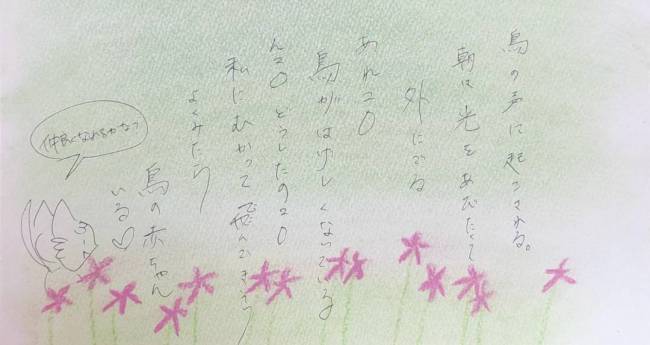 鳥の声に起こされる。
朝は光をあびたくて
外にでる
あれ??
鳥がはげしくないている
ん?? どうしたの??
私にむかって飛んできそう
よくみたら
鳥の赤ちゃん
いる♡
仲良くなれるかな?